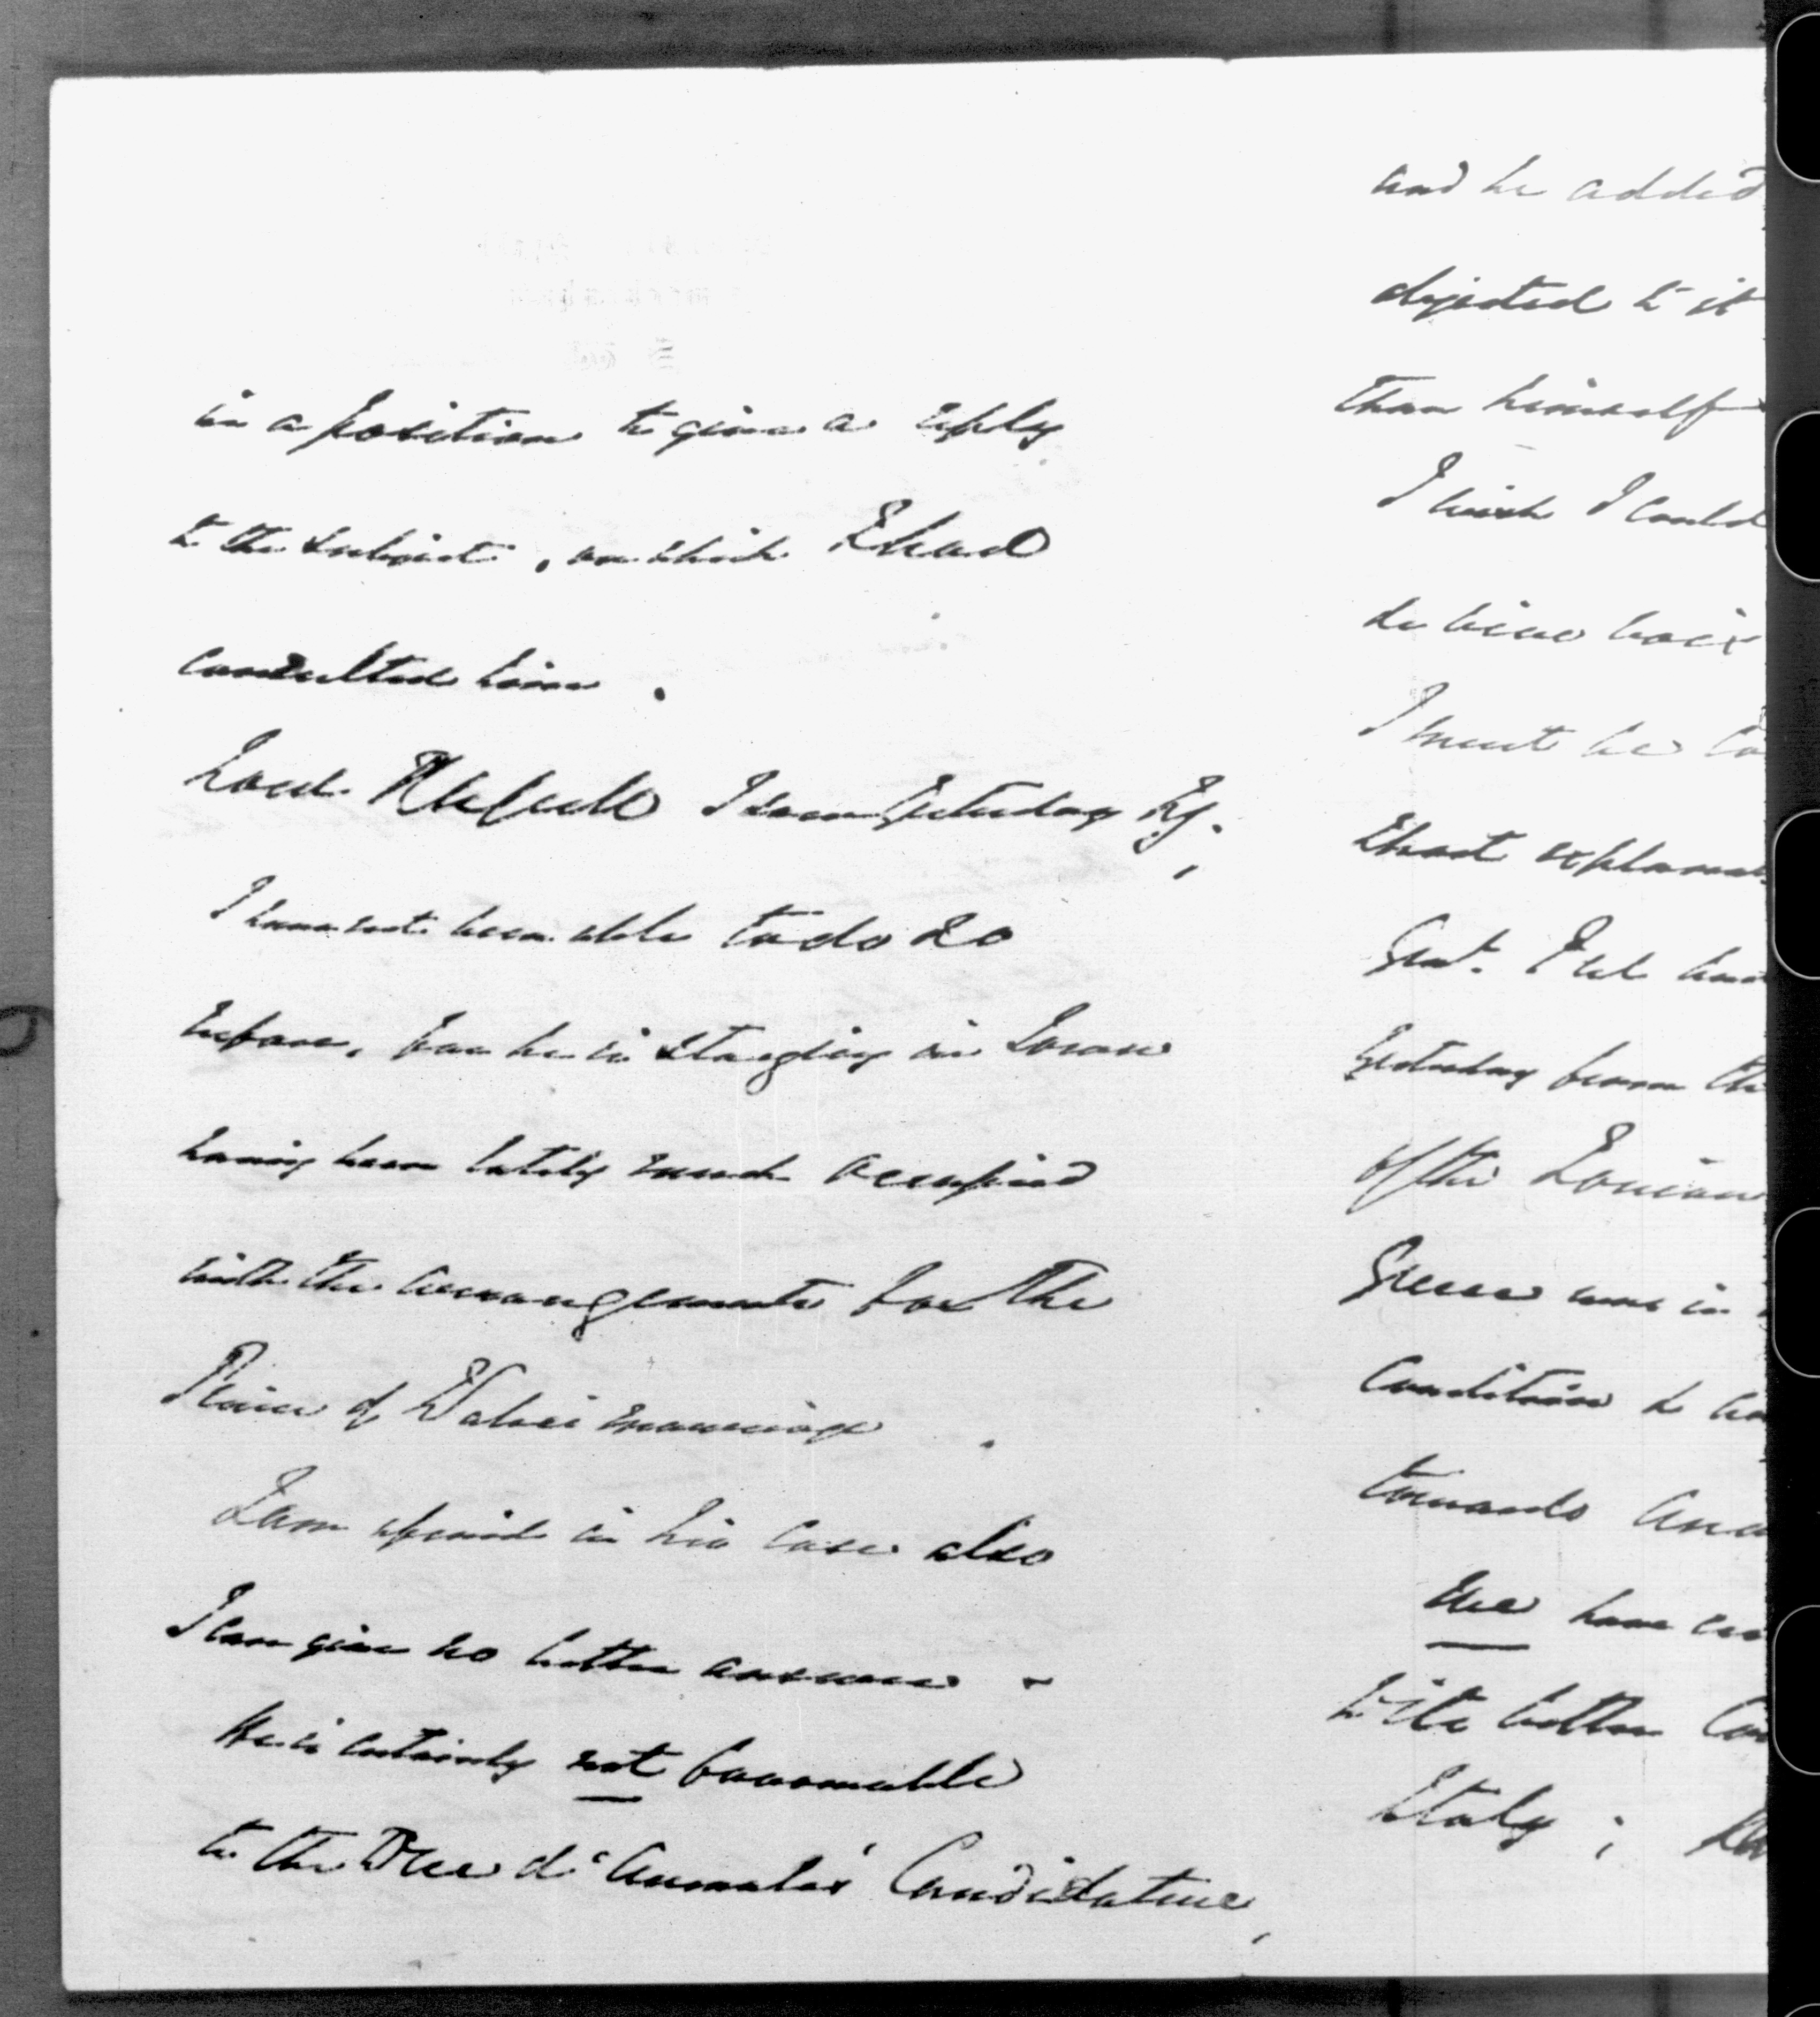 in a position to give a reply
to the subject, on which I had
consulted him.
Lord Russell I saw yesterday
I have not been able to do so
before, for he is staying in
having been lately much occupied
with the arrangements for the
Prince of Wales' marriage.
I am afraid in his case also
I can give no better answer -
He is certainly not favourable
to the Duc d'Aumale's Candidature,
and he added
objected to it
than himself
I wish I could
I must be
that
Govt.
yesterday from the
of the Ionian
Greece was in
Condition to
towards
We have
to
Italy;